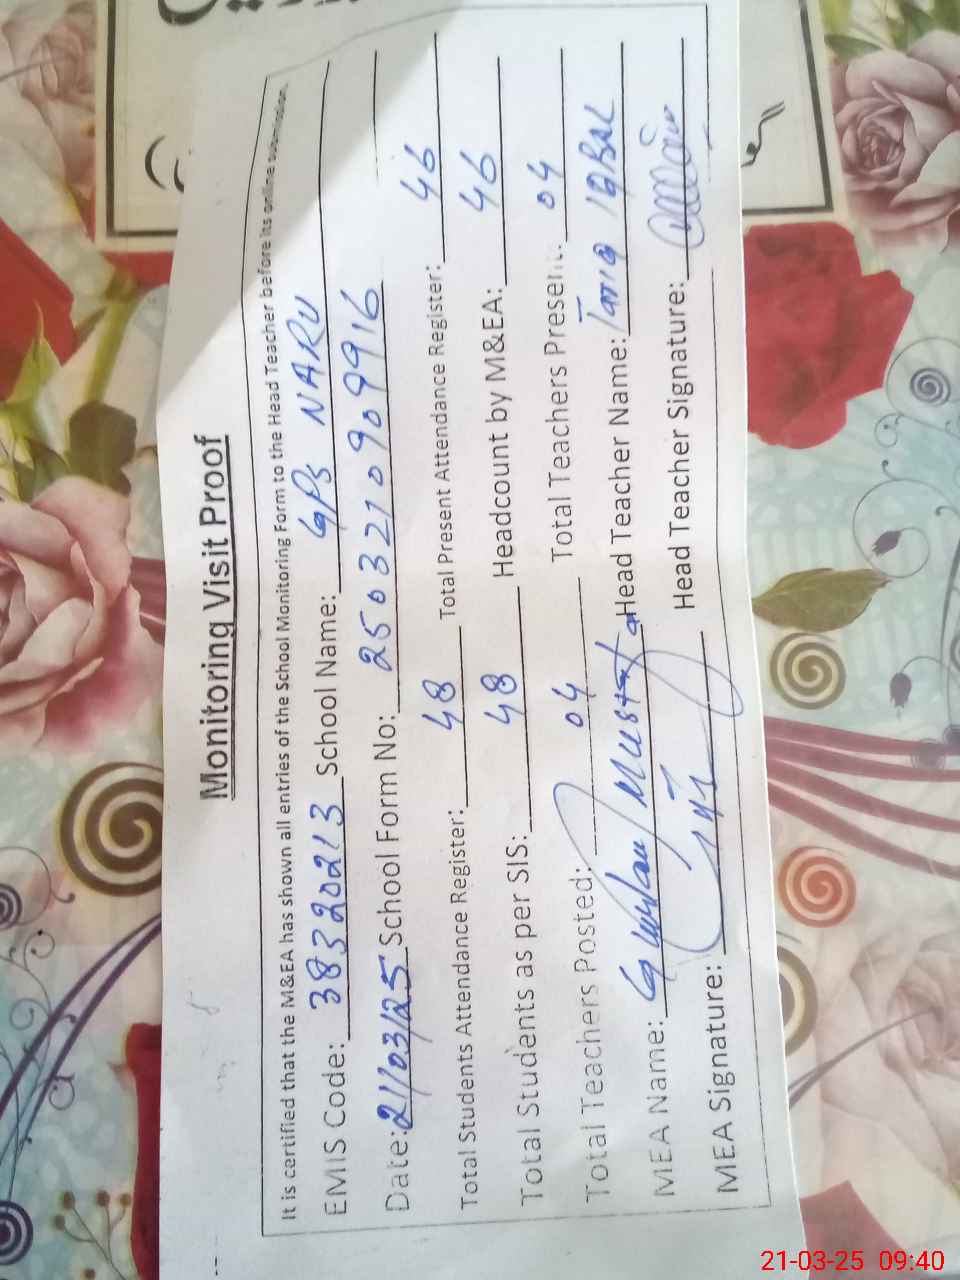 Monitoring Visit Proof
It is certified that the M&EA has shown all entries of the School Monitoring Form to the Head Teacher before its online submission.
EMIS Code: 38320213 School Name: GPS NARU
Date: 21/03/25 School Form No: 2503210909916
Total Students Attendance Register: 48 Total Present Attendance Register: 46
Total Students as per SIS: 48 Headcount by M&EA: 46
Total Teachers Posted: 04 Total Teachers Present: 04
MEA Name: Ghulam Mustafa Head Teacher Name: Tariq IQBAL
MEA Signature: Head Teacher Signature:
21-03-25 09:40